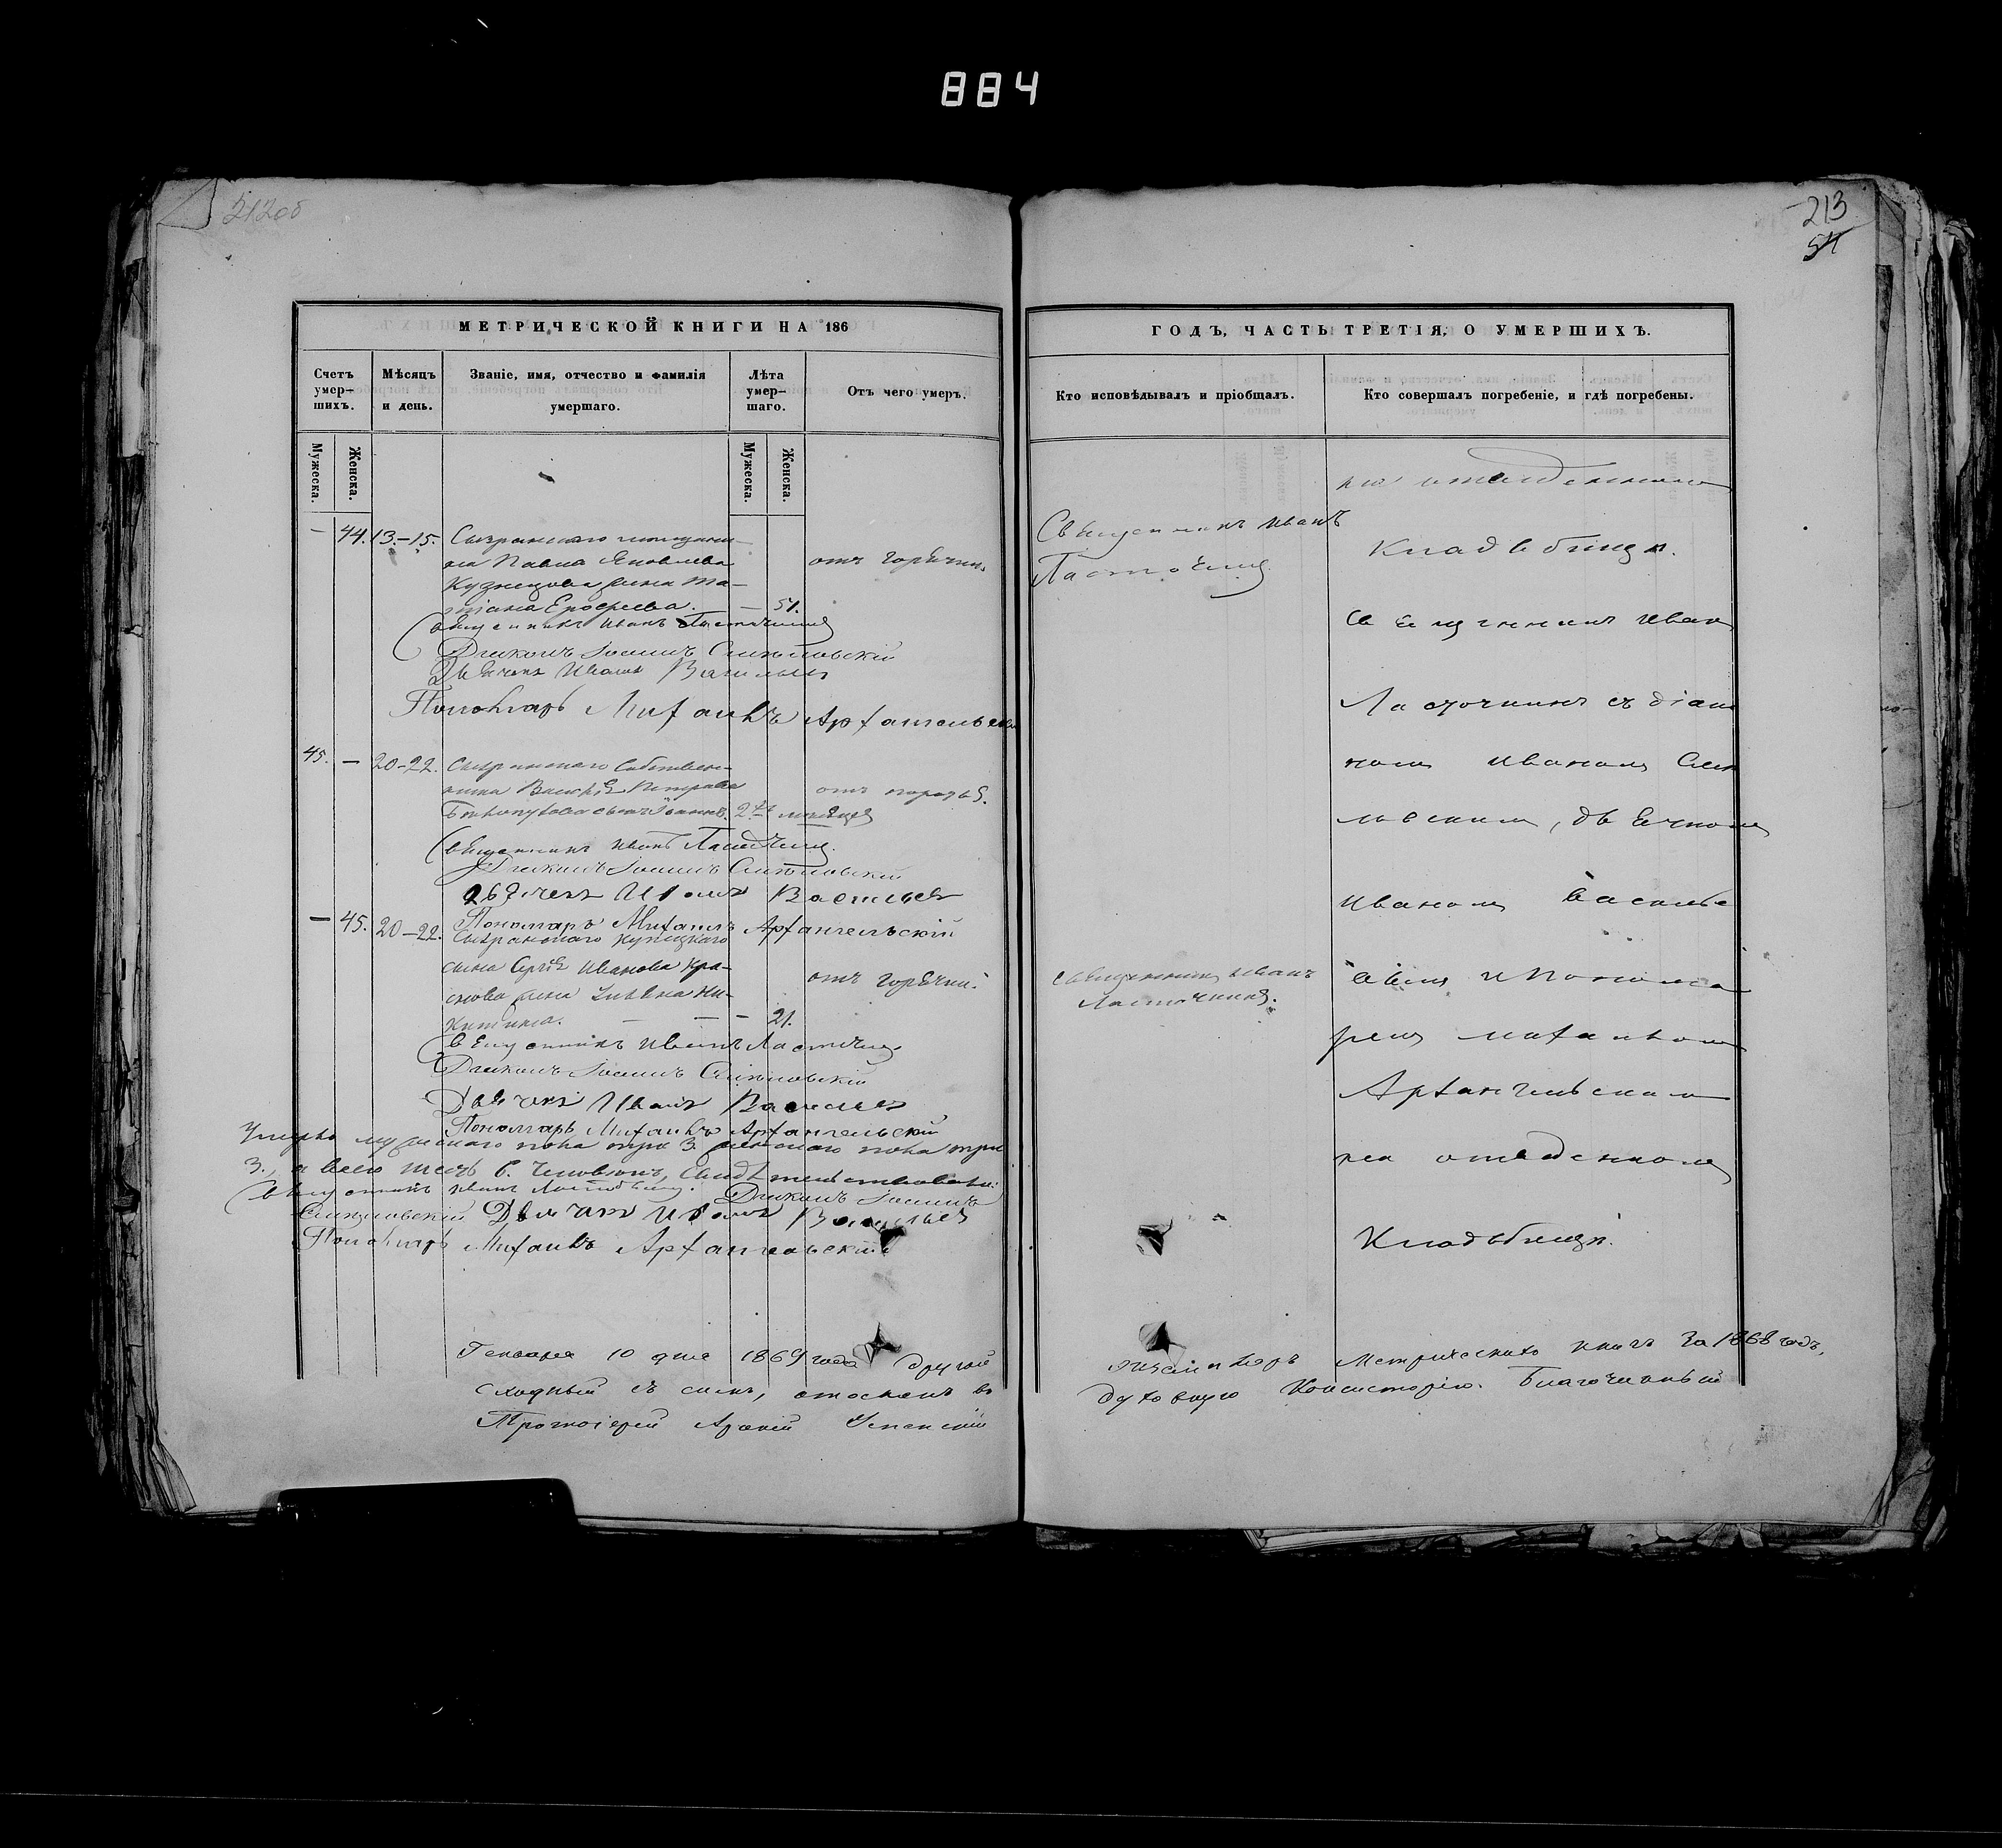 884
212об
213
54
МЕТРИЧЕСКОЙ КНИГИ НА 186
ГОДЪ, ЧАСТЬ ТРЕТІЯ, О УМЕРШИХЪ.
Счетъ умер-шихъ.
Мѣсяцъ и день.
Званіе, имя, отчество и фамилія умершаго.
Лѣта умер-шаго.
Отъ чего умеръ.
Кто исповѣдывалъ и пріобщалъ.
Кто совершалъ погребеніе, и гдѣ погребены.
Мужеска.
Женска.
Мужеска.
Женска.
— 44. 13.-15. Сызранскаго мѣщани-
на Павла Яковлева
Кузнецова жена Та-
тіана Ерофеева. — 51.
отъ горячки.
Священникъ Иванъ Ласточкинъ
Діаконъ Іоаннъ
Дьячекъ Иванъ Васильевъ
Пономарь Михаилъ Архангельскій
45. — 20-22. Сызранскаго собствен-
ника Василія Петрова
сынъ Іоаннъ. 2хъ мѣсяцев
Священникъ Иванъ Ласточкинъ
Діаконъ Іоаннъ
Дьячекъ Иванъ Васильевъ
Пономарь Михаилъ Архангельскій
— 45. 20-22. Сызранскаго купецкаго
сына Сергія Иванова Кра-
жена Ни-
китина. — — — 21.
отъ горячки.
Священникъ Иванъ Ласточкинъ
Діаконъ Іоаннъ
Дьячекъ Иванъ Васильевъ
Пономарь Михаилъ Архангельскій
Умерло мужескаго пола три 3. женскаго пола три
3., а всего шесть 6. человѣкъ, свидѣтельствовали:
Священникъ Иванъ Ласточкинъ. Діаконъ Іоаннъ
Дьячекъ Иванъ Васильевъ
Пономарь Михаилъ Архангельскій
Священникъ Иванъ
Ласточкинъ
Священникъ Иванъ
Ласточкинъ.
на отведенномъ
кладбищѣ.
Священникъ Иван
Ласточкинъ съ діако
номъ Иваномъ
, дьячкомъ
Иваномъ Василье
вымъ и Понома
ремъ Михаиломъ
Архангельскимъ
на отведенномъ
кладбищѣ.
Генваря 10 дня 1869 года другой экземпляръ Метрическихъ книгъ за 1868 годъ,
сходный съ симъ, отосланъ въ духовную Консисторію. Благочинный
Протоіерей Успенскій